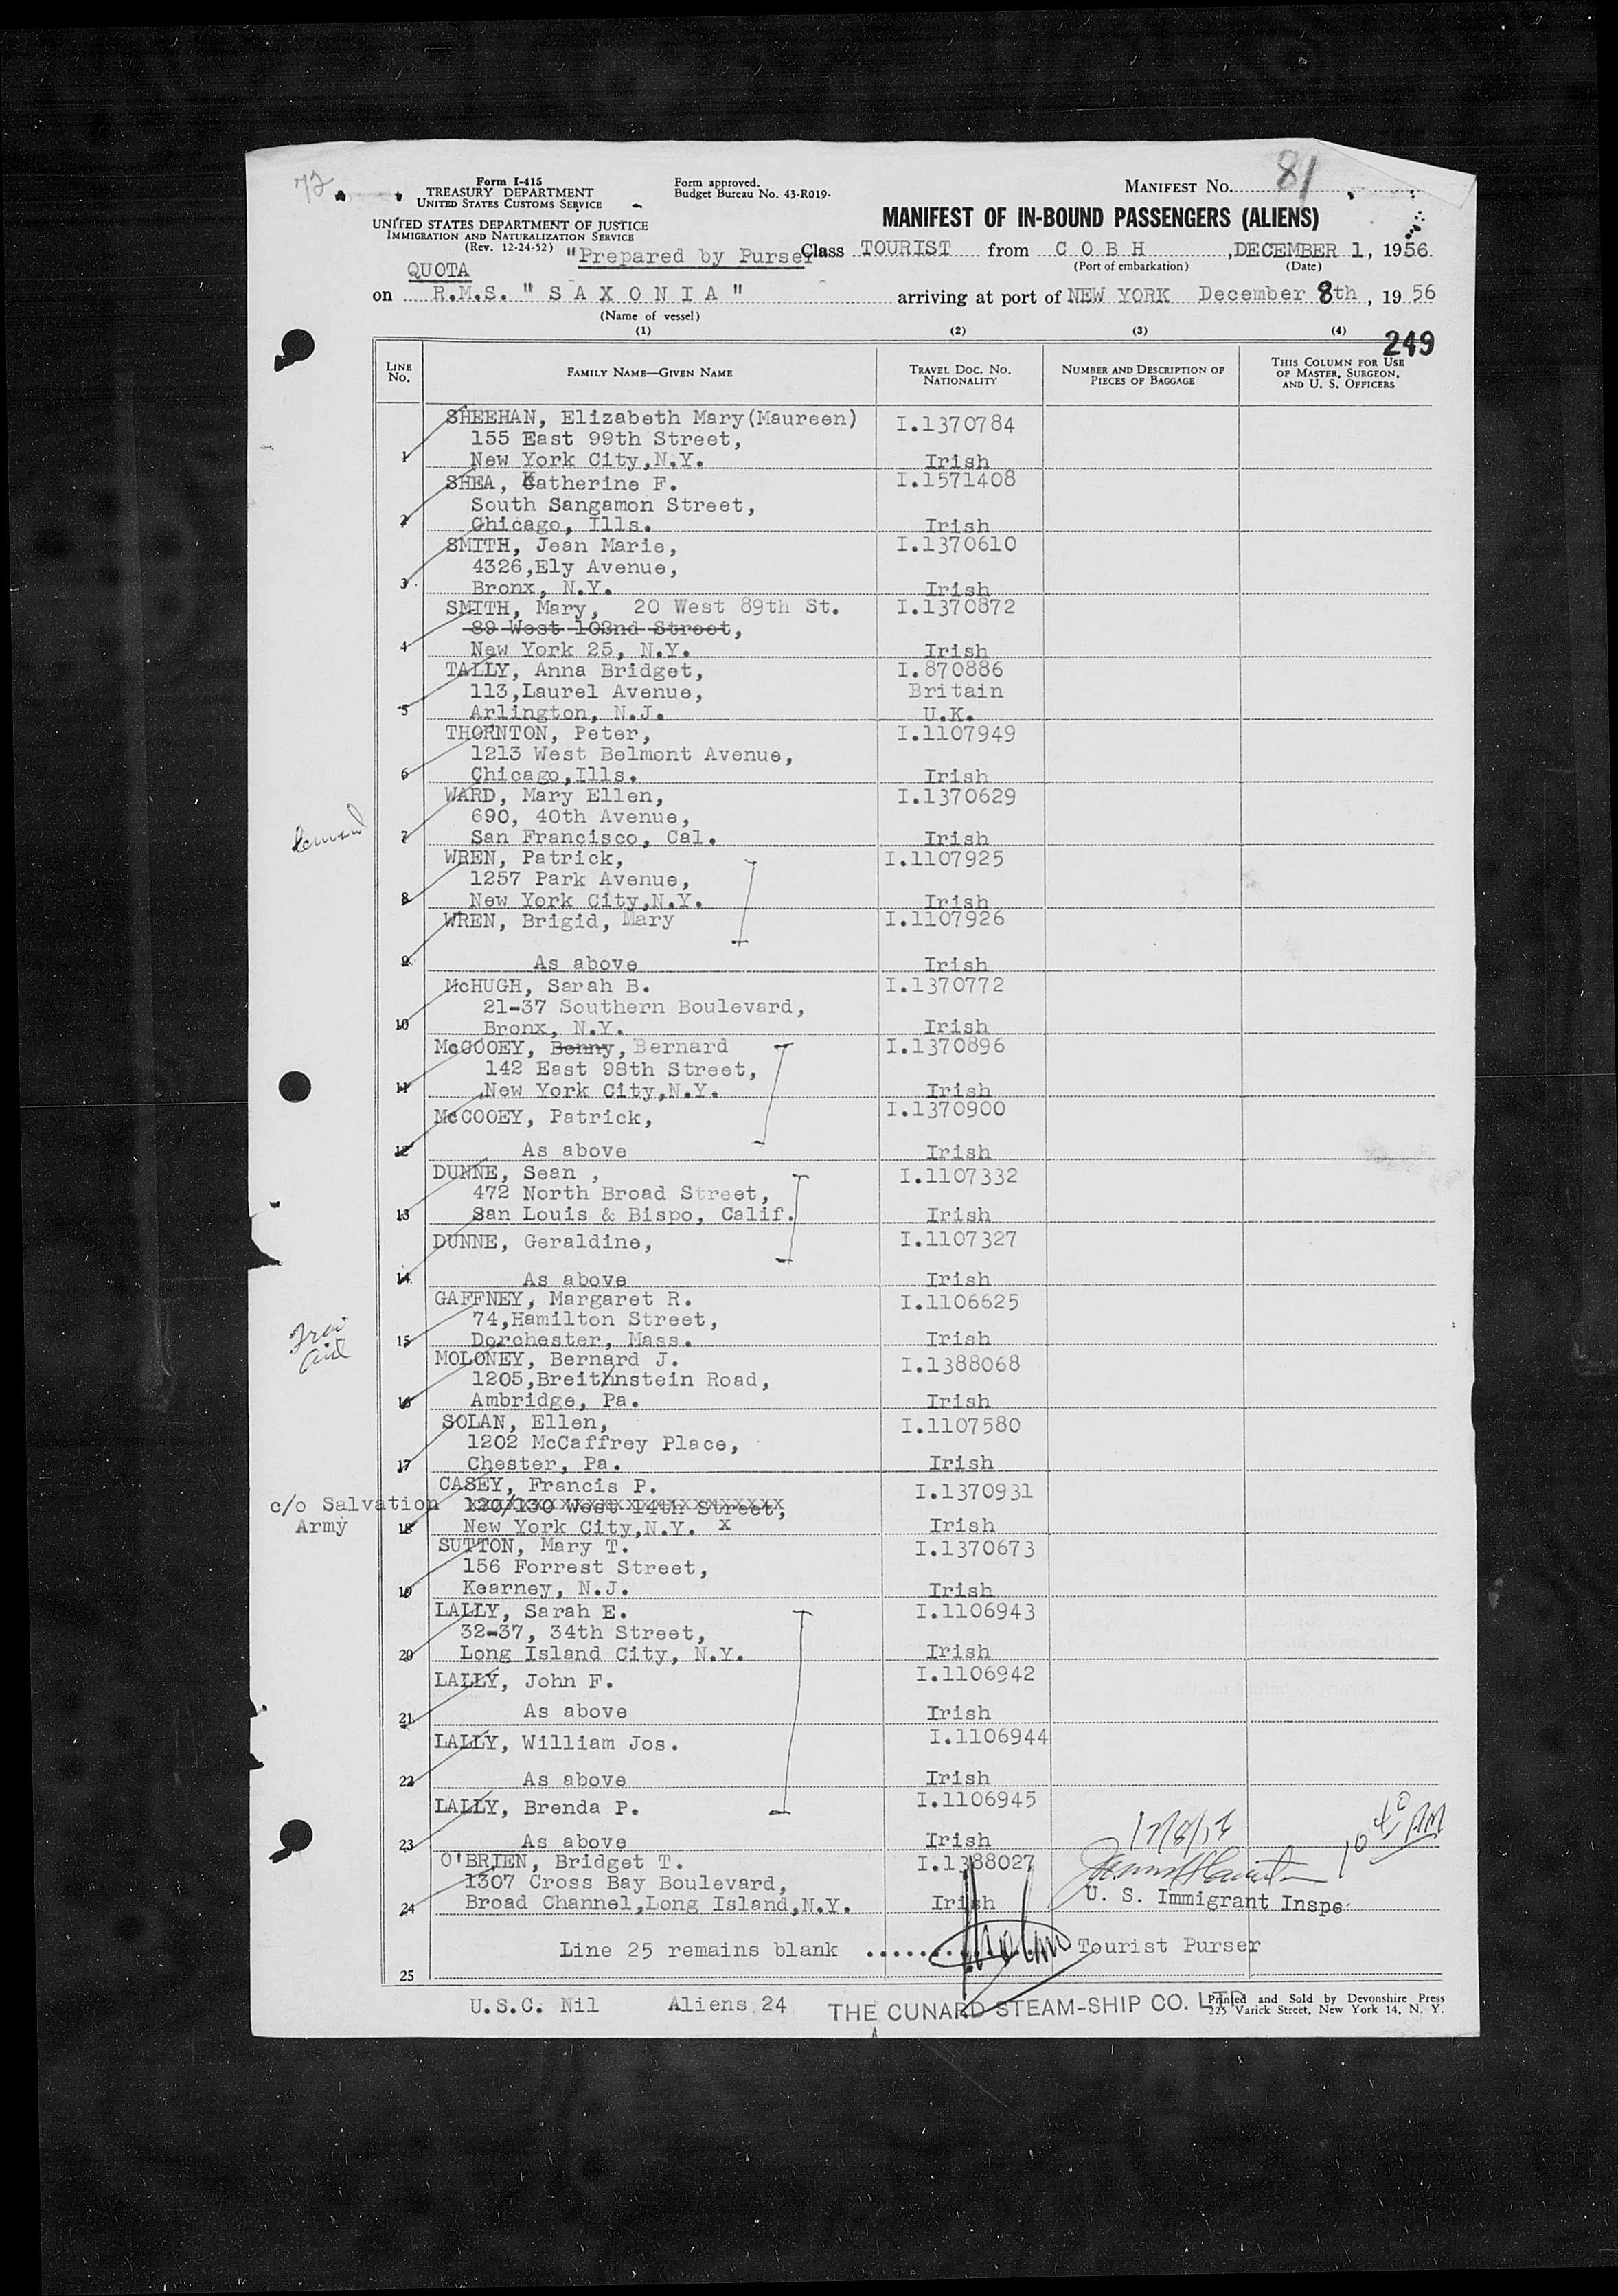 72
Form I-415
TREASURY DEPARTMENT
UNITED STATES CUSTOMS SERVICE
UNITED STATES DEPARTMENT OF JUSTICE
IMMIGRATION AND NATURALIZATION SERVICE
(Rev. 12-24-52)
Form approved.
Budget Bureau No. 43-R019-
MANIFEST NO. 81
MANIFEST OF IN-BOUND PASSENGERS (ALIENS)
"Prepared by Purser" Class TOURIST from C O B H, DECEMBER 1, 1956
(Port of embarkation) (Date)
QUOTA
on R.M.S. "S A X O N I A" arriving at port of NEW YORK December 8th, 1956
(Name of vessel)
(1) (2) (3) (4)
249
LINE NO. FAMILY NAME—GIVEN NAME TRAVEL DOC. NO. NATIONALITY NUMBER AND DESCRIPTION OF PIECES OF BAGGAGE THIS COLUMN FOR USE OF MASTER, SURGEON, AND U. S. OFFICERS
SHEEHAN, Elizabeth Mary(Maureen) I.1370784
155 East 99th Street,
1 New York City,N.Y. Irish
SHEA, Katherine F. I.1571408
South Sangamon Street,
2 Chicago, Ills. Irish
SMITH, Jean Marie, I.1370610
4326,Ely Avenue,
3 Bronx, N.Y. Irish
SMITH, Mary, 20 West 89th St. I.1370872
89 West 102nd Street,
4 New York 25, N.Y. Irish
TALLY, Anna Bridget, I.870886
113,Laurel Avenue, Britain
5 Arlington, N.J. U.K.
THORNTON, Peter, I.1107949
1213 West Belmont Avenue,
6 Chicago,Ills. Irish
WARD, Mary Ellen, I.1370629
690, 40th Avenue,
7 San Francisco, Cal. Irish
WREN, Patrick, I.1107925
1257 Park Avenue,
8 New York City,N.Y. Irish
WREN, Brigid, Mary I.1107926
9 As above Irish
McHUGH, Sarah B. I.1370772
21-37 Southern Boulevard,
10 Bronx, N.Y. Irish
McCOOEY, Benny, Bernard I.1370896
142 East 98th Street,
11 New York City,N.Y. Irish
McCOOEY, Patrick, I.1370900
12 As above Irish
DUNNE, Sean , I.1107332
472 North Broad Street,
13 San Louis & Bispo, Calif. Irish
DUNNE, Geraldine, I.1107327
14 As above Irish
GAFFNEY, Margaret R. I.1106625
74,Hamilton Street,
15 Dorchester, Mass. Irish
MOLONEY, Bernard J. I.1388068
1205,Breithnstein Road,
16 Ambridge, Pa. Irish
SOLAN, Ellen, I.1107580
1202 McCaffrey Place,
17 Chester, Pa. Irish
CASEY, Francis P. I.1370931
c/o Salvation 120/130 West 14th Street,
Army 18 New York City,N.Y. x Irish
SUTTON, Mary T. I.1370673
156 Forrest Street,
19 Kearney, N.J. Irish
LALLY, Sarah E. I.1106943
32-37, 34th Street,
20 Long Island City, N.Y. Irish
LALLY, John F. I.1106942
21 As above Irish
LALLY, William Jos. I.1106944
22 As above Irish
LALLY, Brenda P. I.1106945
23 As above Irish
O'BRIEN, Bridget T. I.1388027
1307 Cross Bay Boulevard,
24 Broad Channel,Long Island,N.Y. Irish U. S. Immigrant Inspe
Line 25 remains blank .............. Tourist Purser
25
U.S.C. Nil Aliens 24 THE CUNARD STEAM-SHIP CO. LTD
Printed and Sold by Devonshire Press
225 Varick Street, New York 14, N. Y.